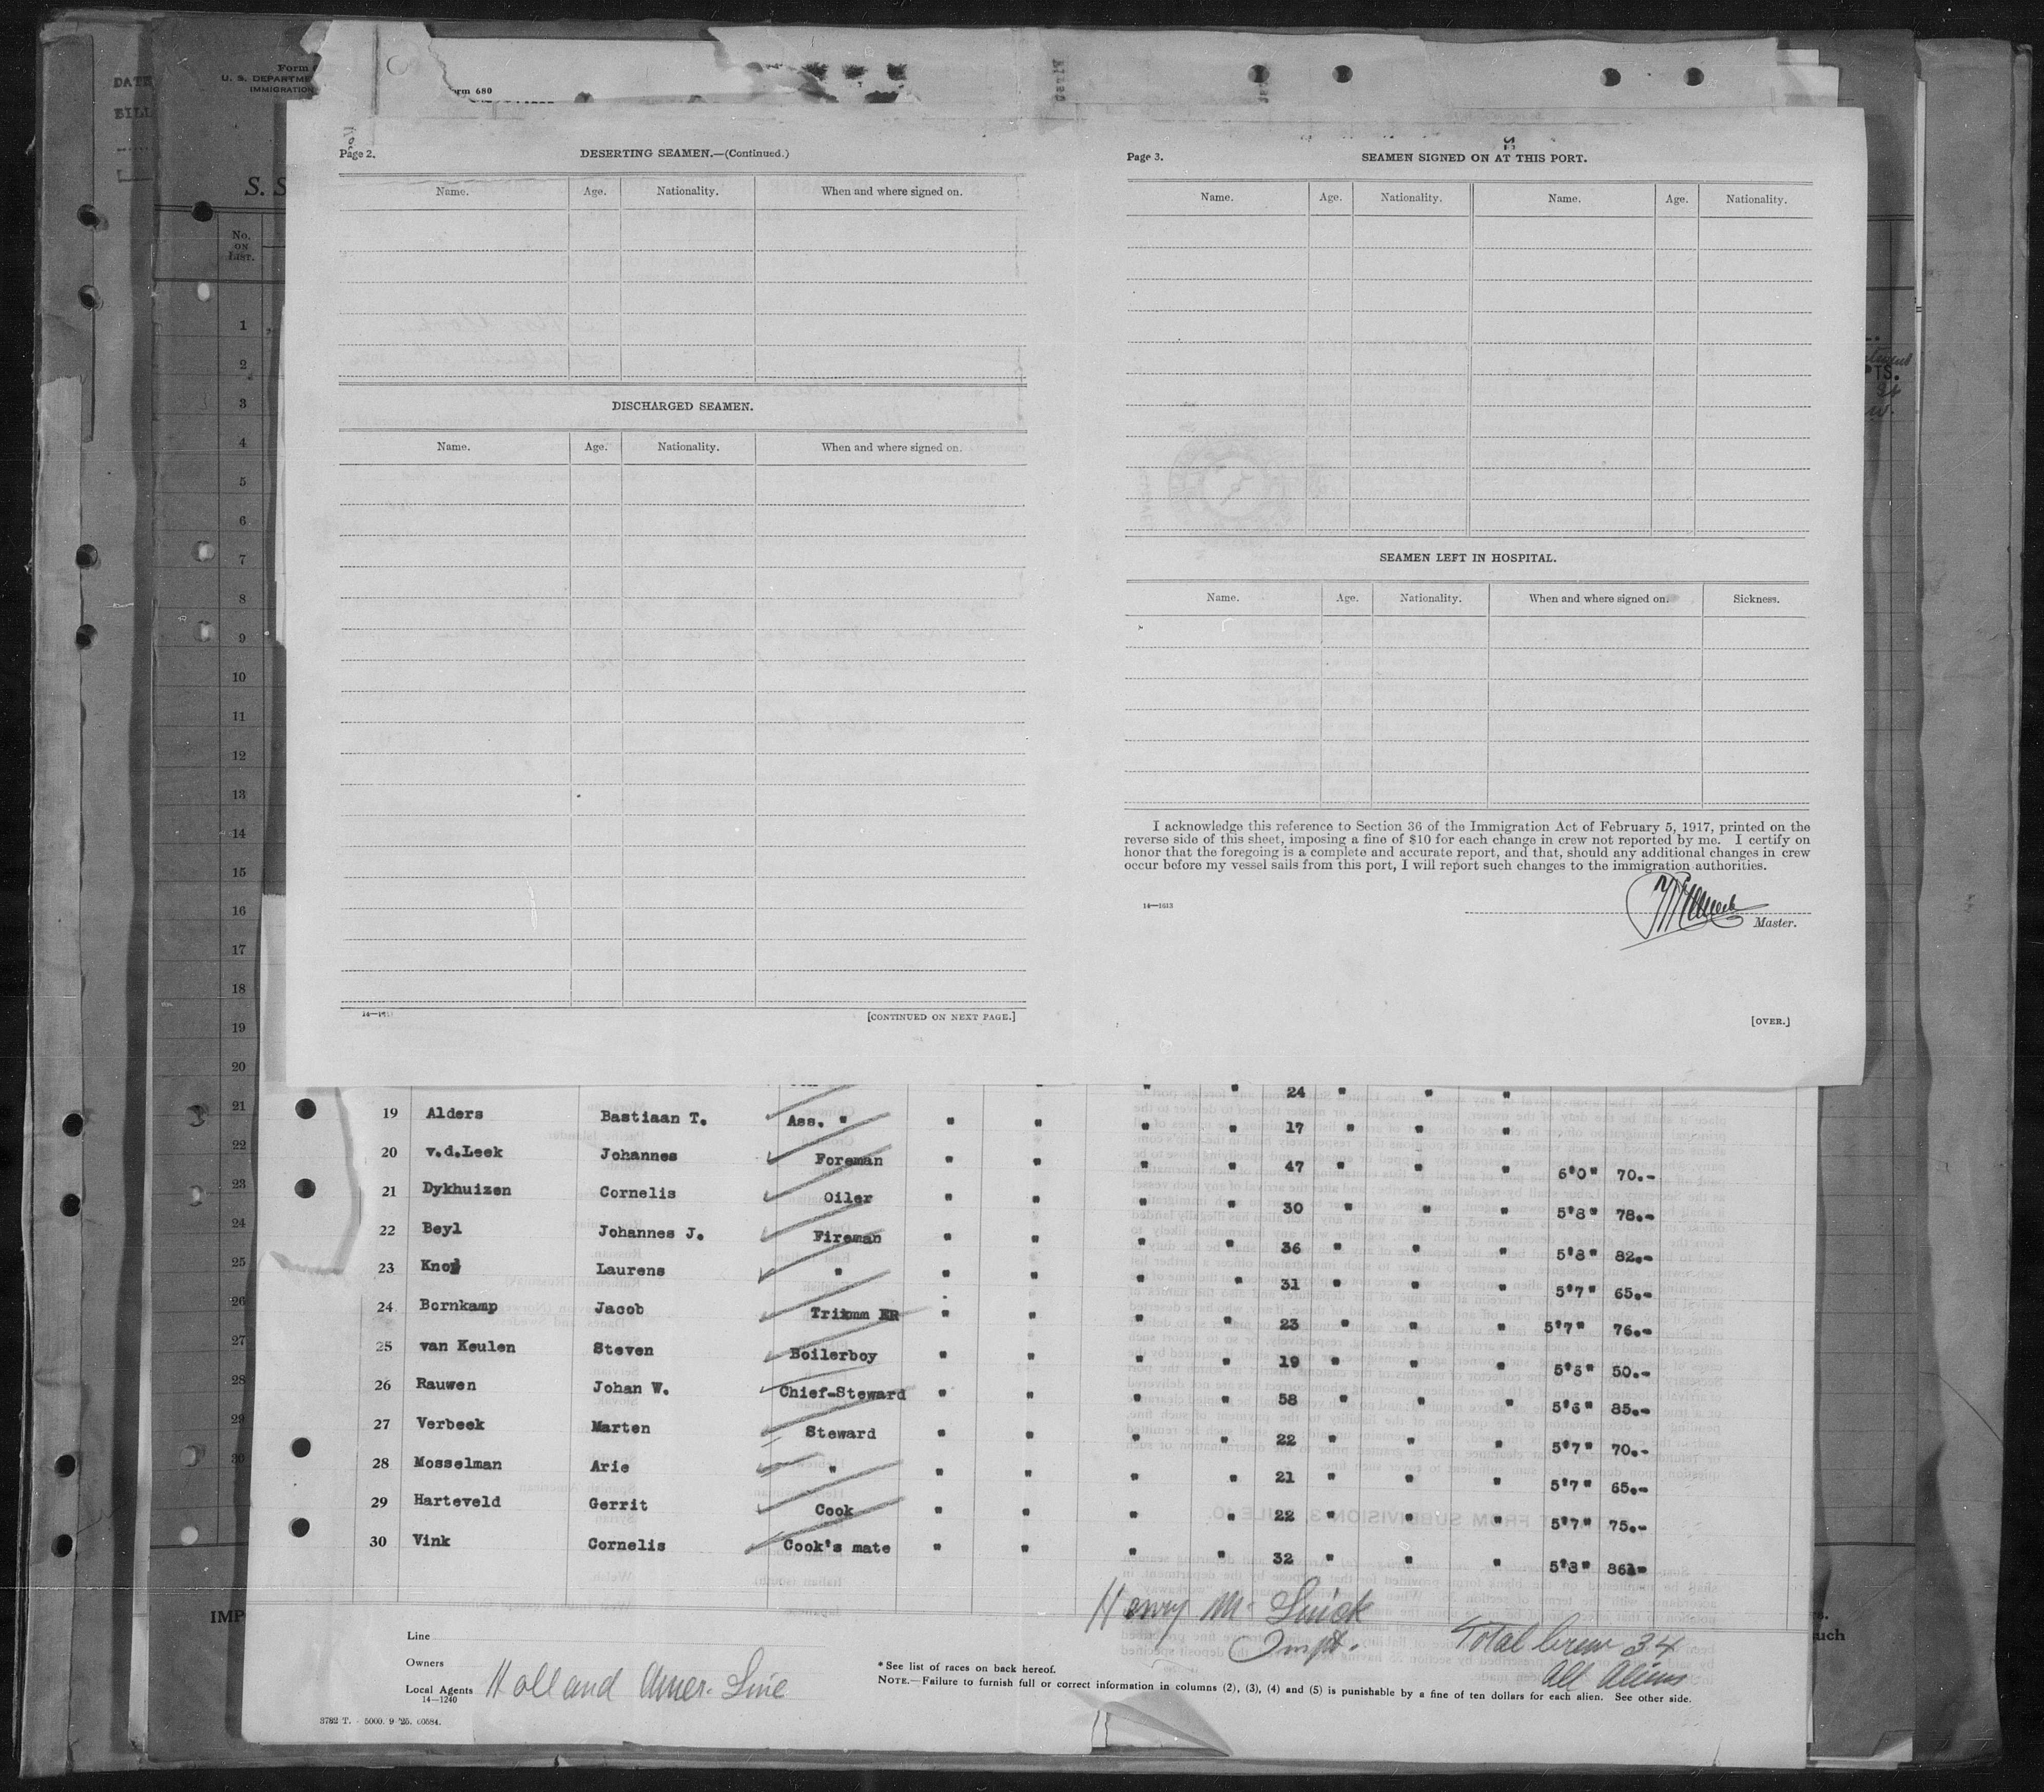 DATE
BILL
Form
U. S. DEPARTME
IMMIGRATION
orm 680
S. S
No.
ON
LIST.
1
2
3
4
5
6
7
8
9
10
11
12
13
14
15
16
17
18
19
20
21
22
23
24
25
26
27
28
29
30
IMP
PTS.
uch
Page 2.
DESERTING SEAMEN.—(Continued.)
Name. Age. Nationality. When and where signed on.
DISCHARGED SEAMEN.
Name. Age. Nationality. When and where signed on.
[CONTINUED ON NEXT PAGE.]
Page 3.
SEAMEN SIGNED ON AT THIS PORT.
Name. Age. Nationality. Name. Age. Nationality.
SEAMEN LEFT IN HOSPITAL.
Name. Age. Nationality. When and where signed on. Sickness.
I acknowledge this reference to Section 36 of the Immigration Act of February 5, 1917, printed on the
reverse side of this sheet, imposing a fine of $10 for each change in crew not reported by me. I certify on
honor that the foregoing is a complete and accurate report, and that, should any additional changes in crew
occur before my vessel sails from this port, I will report such changes to the immigration authorities.
14—1613
Master.
[OVER.]
" " 24 " " "
19 Alders Bastiaan T. Ass. " " " " " 17 " " "
20 v.d.Leek Johannes Foreman " " " " 47 " " " 6'0" 70.-
21 Dykhuizen Cornelis Oiler " " " " 30 " " " 5'8" 78.-
22 Beyl Johannes J. Fireman " " " " 36 " " " 5'8" 82.-
23 Laurens " " " " " 31 " " " 5'7" 65.-
24 Bornkamp Jacob Trimm ER " " " " 23 " " " 5'7" 76.-
25 van Keulen Steven Boilerboy " " " " 19 " " " 50.-
26 Rauwen Johan W. Chief-Steward " " " " 58 " " " 5'6" 85.-
27 Verbeek Marten Steward " " " " 22 " " " 5'7" 70.-
28 Mosselman Arie " " " " " 21 " " " 5'7" 65.-
29 Harteveld Gerrit Cook " " " " 22 " " " 5'7" 75.-
30 Vink Cornelis Cook's mate " " " " 32 " " " 5'8"
Henry M.
Inspt.
Total Crew 34
All Aliens
Line
Owners
Local Agents Holland Amer. Line
14—1240
* See list of races on back hereof.
NOTE.—Failure to furnish full or correct information in columns (2), (3), (4) and (5) is punishable by a fine of ten dollars for each alien. See other side.
3782 T. - 5000. 9 '25. C0584.